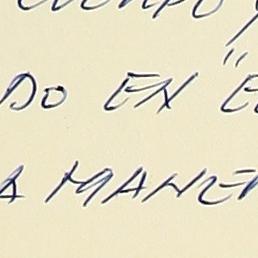 DO EN "E
A MANE